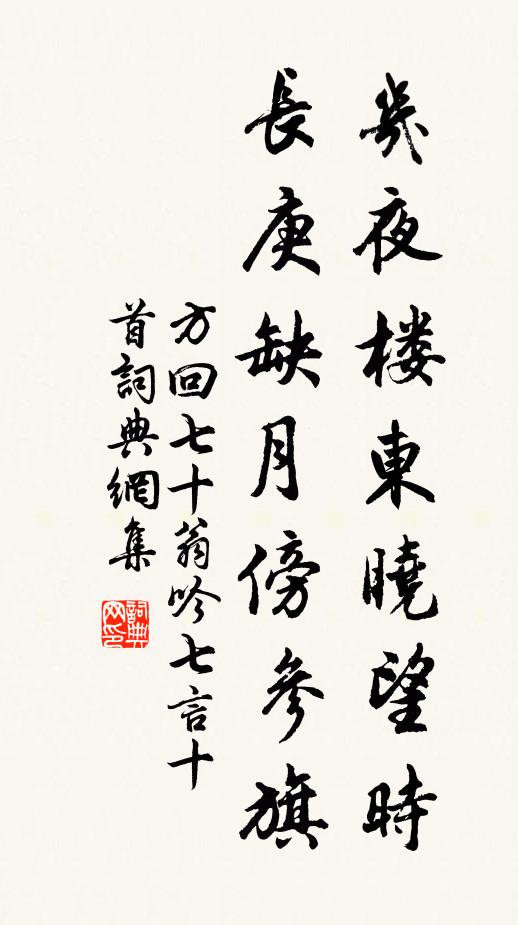 幾夜楼東曉望時
長庚缺月傍參旗
方回七十翁吟七言十
首詞典網集
詞典网印